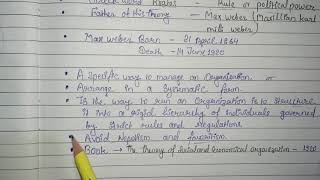 Kratos - Rule or political power
Father of this theory - Max weber (Maxillian karl
mile weber)
Max weber Born - 21 April 1864
Death - 14 June 1920
A specific way to manage an Organisation. or
Arrange in a Systematic form.
Is the way to run an Organization is to structure
it into a rigid hierarchy of individuals governed
by strict rules and regulations
Avoid Nepotism and favoritism.
Book → The theory of Social and Economical organization - 1920